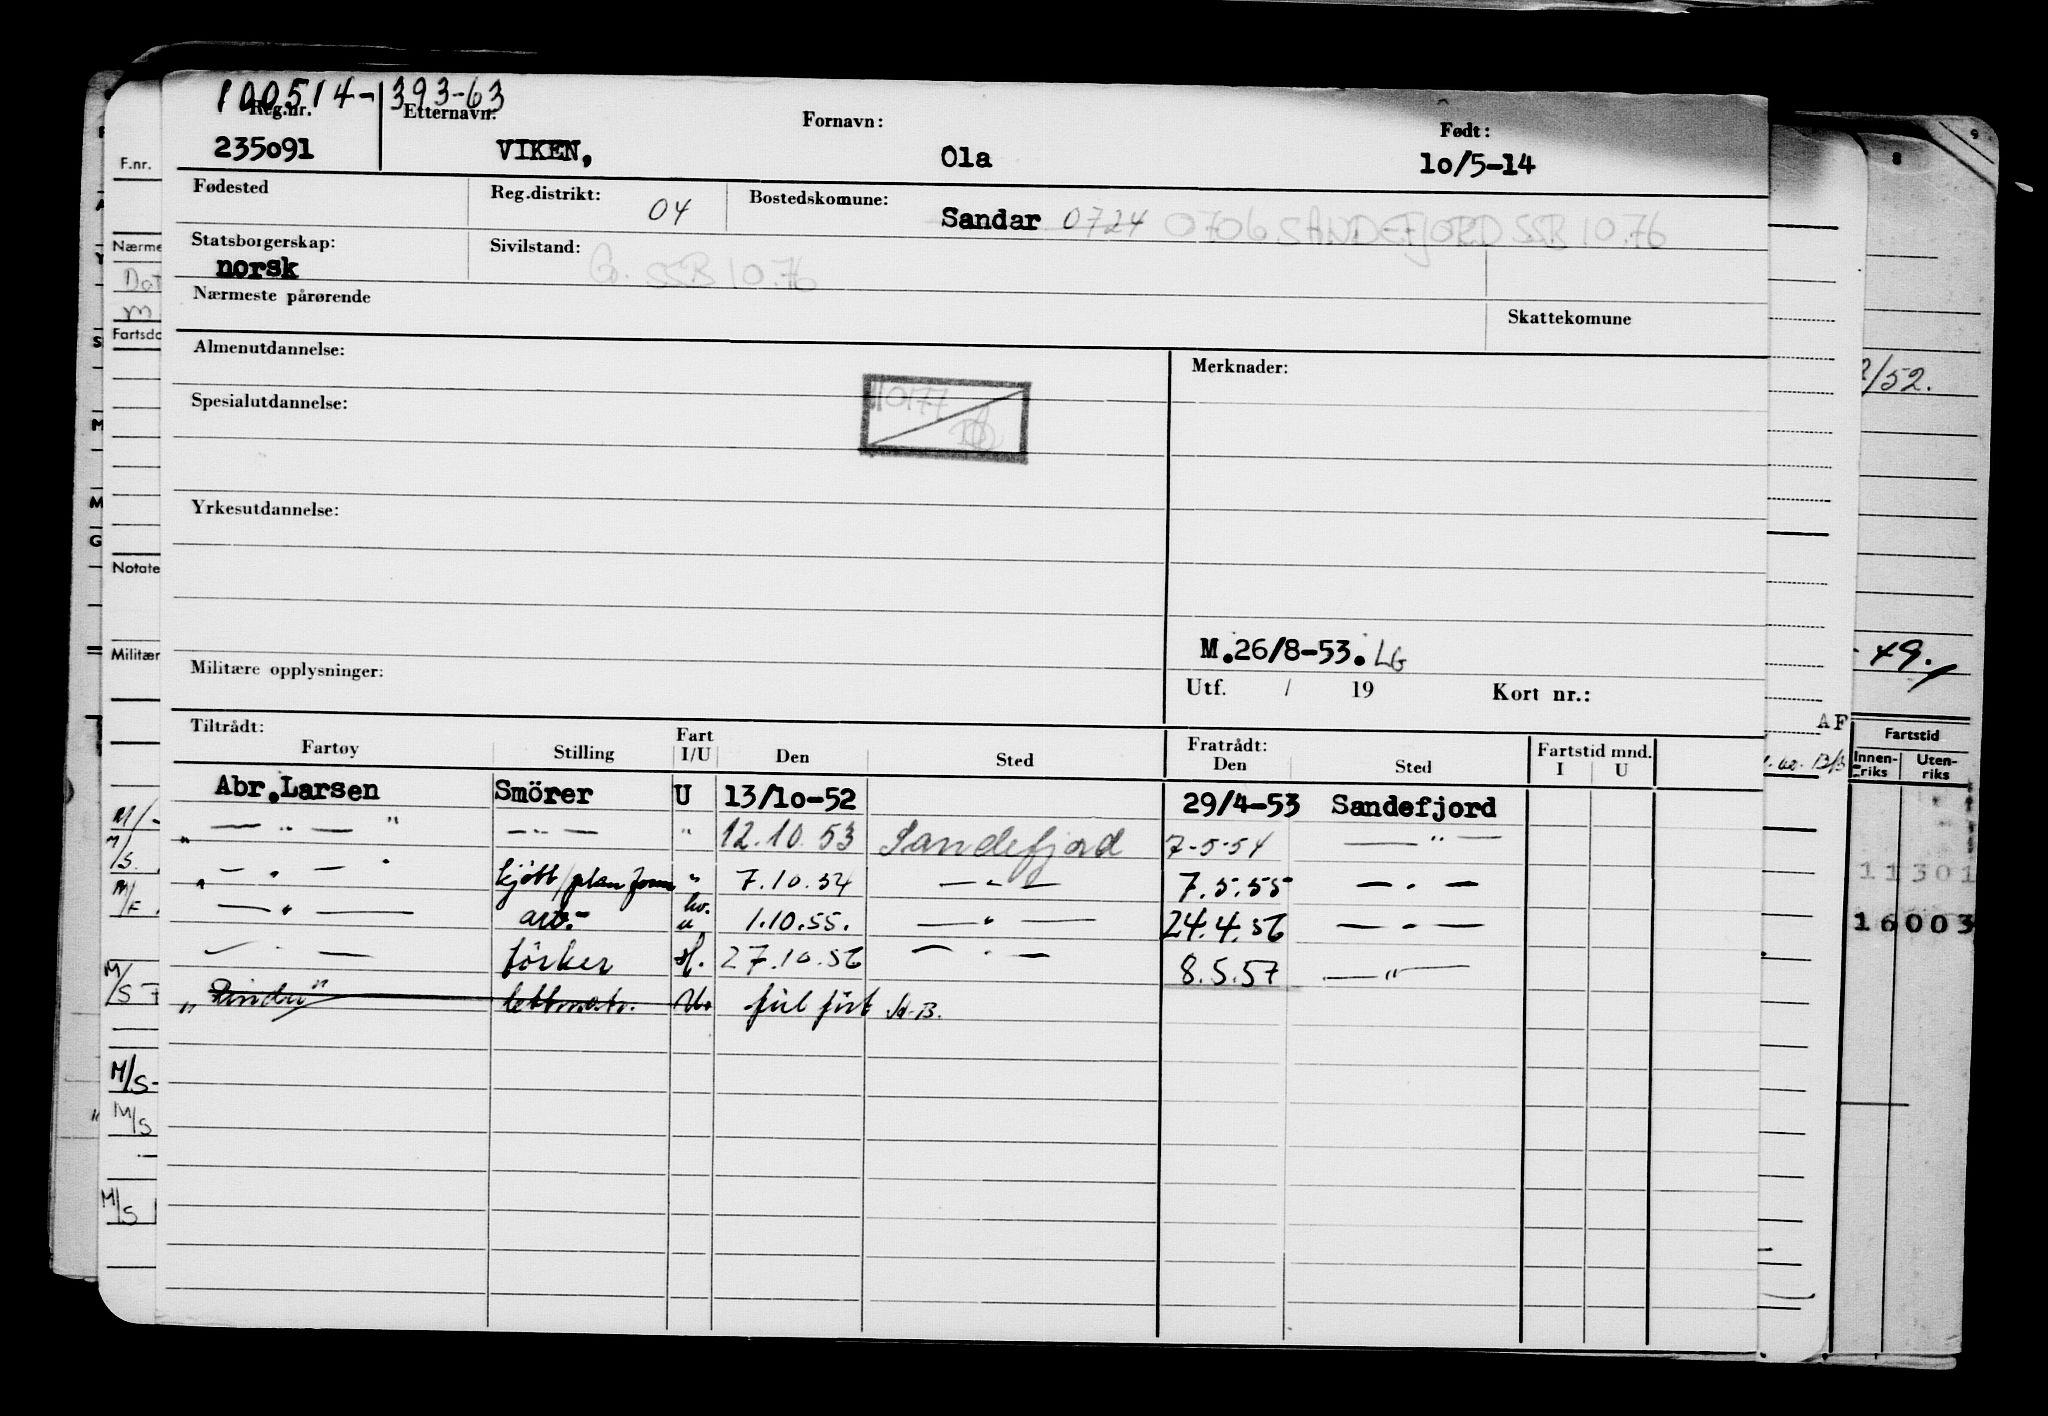 100514-393-63
Reg.nr. Etternavn: Fornavn: Født:
235091 VIKEN, Ola 10/5-14
Fødested Reg.distrikt: 04 Bostedskomune: Sandar 0724 0706 SANDEFJORD SSB 10.76
Statsborgerskap: norsk Sivilstand: G. SSB 10.76
Nærmeste pårørende Skattekomune
Almenutdannelse: Merknader:
Spesialutdannelse:
Yrkesutdannelse:
M.26/8-53. LG
Militære opplysninger: Utf. / 19 Kort nr.:
Tiltrådt: Fratrådt:
Fartøy Stilling Fart I/U Den Sted Den Sted Fartstid mnd. I U
Abr.Larsen Smörer U 13/10-52 29/4-53 Sandefjord
" — " — " — " — " 12.10.53 Sandefjord 7-5-54 — " —
" — " — " kjøtt/plan form " 7.10.54 — " — 7.5.55 — " —
— " — arb. hv. u. 1.10.55. — " — 24.4.56 — " —
— " — törker 27.10.56 — " — 8.5.57 — " —
F.nr.
Nærme
Fartsdo
Notate
Militær
M/S
M/S
M/S
2/52.
49.
AF
Fartstid
Innen-riks Uten-riks
11301
16003
8
9